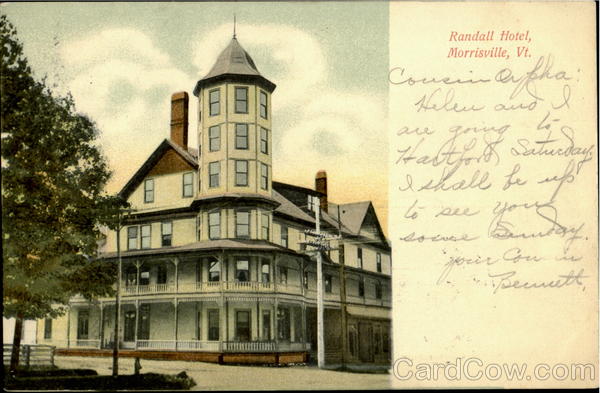 Randall Hotel,
Morrisville, Vt.
Cousin Orpha:
Helen and I
are going to
Hartford Saturday,
I shall be up
to see you
some Sunday.
your Cousin
Bennett.
CardCow.com